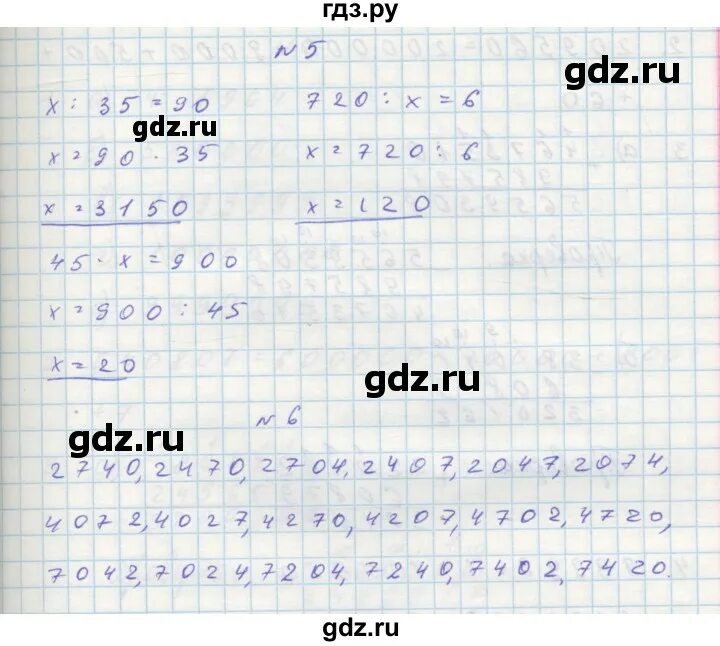 гдз.ру
№ 5
gdz.ru
x : 35 = 90 720 : x = 6
gdz.ru
x = 90 · 35 x = 720 : 6
x = 3150 x = 120
45 · x = 900
x = 900 : 45
x = 20
gdz.ru
№ 6
gdz.ru
2740, 2470, 2704, 2407, 2047, 2074,
4072, 4027, 4270, 4207, 4702, 4720,
7042, 7024, 7204, 7240, 7402, 7420.
gdz.ru